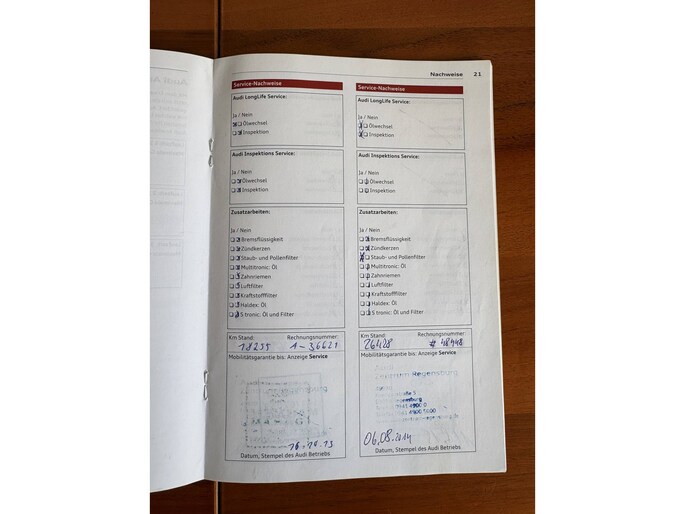 Nachweise 21
Service-Nachweise
Audi LongLife Service:
Ja / Nein
Ölwechsel
Inspektion
Audi Inspektions Service:
Ja / Nein
Ölwechsel
Inspektion
Zusatzarbeiten:
Ja / Nein
Bremsflüssigkeit
Zündkerzen
Staub- und Pollenfilter
Multitronic: Öl
Zahnriemen
Luftfilter
Kraftstofffilter
Haldex: Öl
S tronic: Öl und Filter
Km Stand: Rechnungsnummer:
18255 1-36621
Mobilitätsgarantie bis: Anzeige Service
Datum, Stempel des Audi Betriebs
Service-Nachweise
Audi LongLife Service:
Ja / Nein
Ölwechsel
Inspektion
Audi Inspektions Service:
Ja / Nein
Ölwechsel
Inspektion
Zusatzarbeiten:
Ja / Nein
Bremsflüssigkeit
Zündkerzen
Staub- und Pollenfilter
Multitronic: Öl
Zahnriemen
Luftfilter
Kraftstofffilter
Haldex: Öl
S tronic: Öl und Filter
Km Stand: Rechnungsnummer:
26428 # 48948
Mobilitätsgarantie bis: Anzeige Service
Zentrum Regensburg
06.08.2014
Datum, Stempel des Audi Betriebs